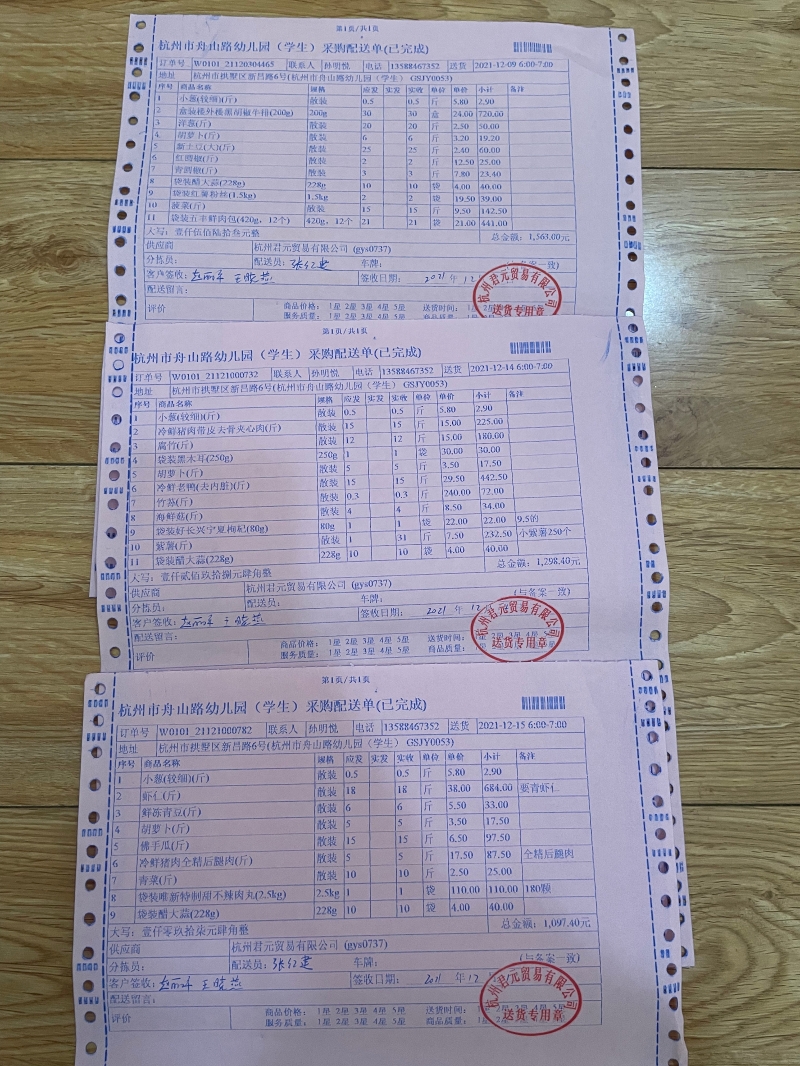 第1页/共1页
杭州市舟山路幼儿园（学生）采购配送单(已完成)
订单号 W0101_21120304465 联系人 孙明悦 电话 13588467352 送货 2021-12-09 6:00-7:00
地址 杭州市拱墅区新昌路6号(杭州市舟山路幼儿园（学生） GSJY0053)
序号 商品名称 规格 应发 实发 实收 单位 单价 小计 备注
1 小葱(较细)(斤) 散装 0.5 0.5 斤 5.80 2.90
2 盒装楼外楼黑胡椒牛排(200g) 200g 30 30 盒 24.00 720.00
3 洋葱(斤) 散装 20 20 斤 2.50 50.00
4 胡萝卜(斤) 散装 6 6 斤 3.20 19.20
5 新土豆(大)(斤) 散装 25 25 斤 2.40 60.00
6 红圆椒(斤) 散装 2 2 斤 12.50 25.00
7 青圆椒(斤) 散装 3 3 斤 7.80 23.40
8 袋装醋大蒜(228g) 228g 10 10 袋 4.00 40.00
9 袋装红薯粉丝(1.5kg) 1.5kg 2 2 袋 19.50 39.00
10 菠菜(斤) 散装 15 15 斤 9.50 142.50
11 袋装五丰鲜肉包(420g，12个) 420g，12个 21 21 袋 21.00 441.00
大写：壹仟伍佰陆拾叁元整 总金额：1,563.00元
供应商 杭州君元贸易有限公司 (gys0737)
分拣员： 配送员：张红建 车牌： 一致)
客户签收：赵丽平 王晓燕 签收日期： 2021 年 12
配送留言：
评价 商品价格： 1星 2星 3星 4星 5星 送货时间： 1星
服务质量： 1星 2星 3星 4星 5星 商品质量：
杭州君元贸易有限公司
送货专用章
第1页/共1页
杭州市舟山路幼儿园（学生）采购配送单(已完成)
订单号 W0101_21121000732 联系人 孙明悦 电话 13588467352 送货 2021-12-14 6:00-7:00
地址 杭州市拱墅区新昌路6号(杭州市舟山路幼儿园（学生） GSJY0053)
序号 商品名称 规格 应发 实发 实收 单位 单价 小计 备注
1 小葱(较细)(斤) 散装 0.5 0.5 斤 5.80 2.90
2 冷鲜猪肉带皮去骨夹心肉(斤) 散装 15 15 斤 15.00 225.00
3 腐竹(斤) 散装 12 12 斤 15.00 180.00
4 袋装黑木耳(250g) 250g 1 1 袋 30.00 30.00
5 胡萝卜(斤) 散装 5 5 斤 3.50 17.50
6 冷鲜老鸭(去内脏)(斤) 散装 15 15 斤 29.50 442.50
7 竹荪(斤) 散装 0.3 0.3 斤 240.00 72.00
8 海鲜菇(斤) 散装 4 4 斤 8.50 34.00
9 袋装好长兴宁夏枸杞(80g) 80g 1 1 袋 22.00 22.00 9.5的
10 紫薯(斤) 散装 1 31 斤 7.50 232.50 小紫薯250个
11 袋装醋大蒜(228g) 228g 10 10 袋 4.00 40.00
大写：壹仟贰佰玖拾捌元肆角整 总金额：1,298.40元
供应商 杭州君元贸易有限公司 (gys0737)
分拣员： 配送员： 车牌： (与备案一致)
客户签收：赵丽平 王晓燕 签收日期： 2021 年 12
配送留言：
评价 商品价格： 1星 2星 3星 4星 5星 送货时间： 1星 2星 3星 4星 5星
服务质量： 1星 2星 3星 4星 5星 商品质量：
杭州君元贸易有限公司
送货专用章
第1页/共1页
杭州市舟山路幼儿园（学生）采购配送单(已完成)
订单号 W0101_21121000782 联系人 孙明悦 电话 13588467352 送货 2021-12-15 6:00-7:00
地址 杭州市拱墅区新昌路6号(杭州市舟山路幼儿园（学生） GSJY0053)
序号 商品名称 规格 应发 实发 实收 单位 单价 小计 备注
1 小葱(较细)(斤) 散装 0.5 0.5 斤 5.80 2.90
2 虾仁(斤) 散装 18 18 斤 38.00 684.00 要青虾仁
3 鲜冻青豆(斤) 散装 6 6 斤 5.50 33.00
4 胡萝卜(斤) 散装 5 5 斤 3.50 17.50
5 佛手瓜(斤) 散装 15 15 斤 6.50 97.50
6 冷鲜猪肉全精后腿肉(斤) 散装 5 5 斤 17.50 87.50 全精后腿肉
7 青菜(斤) 散装 10 10 斤 2.50 25.00
8 袋装唯新特制甜不辣肉丸(2.5kg) 2.5kg 1 1 袋 110.00 110.00 180颗
9 袋装醋大蒜(228g) 228g 10 10 袋 4.00 40.00
大写：壹仟零玖拾柒元肆角整 总金额：1,097.40元
供应商 杭州君元贸易有限公司 (gys0737)
分拣员： 配送员：张红建 车牌： (与备案一致)
客户签收：赵丽平 王晓燕 签收日期： 2021 年 12
配送留言：
评价 商品价格： 1星 2星 3星 4星 5星 送货时间： 1星 2星 3星 4星 5星
服务质量： 1星 2星 3星 4星 5星 商品质量： 1星 2星 3星 4星 5星
杭州君元贸易有限公司
送货专用章